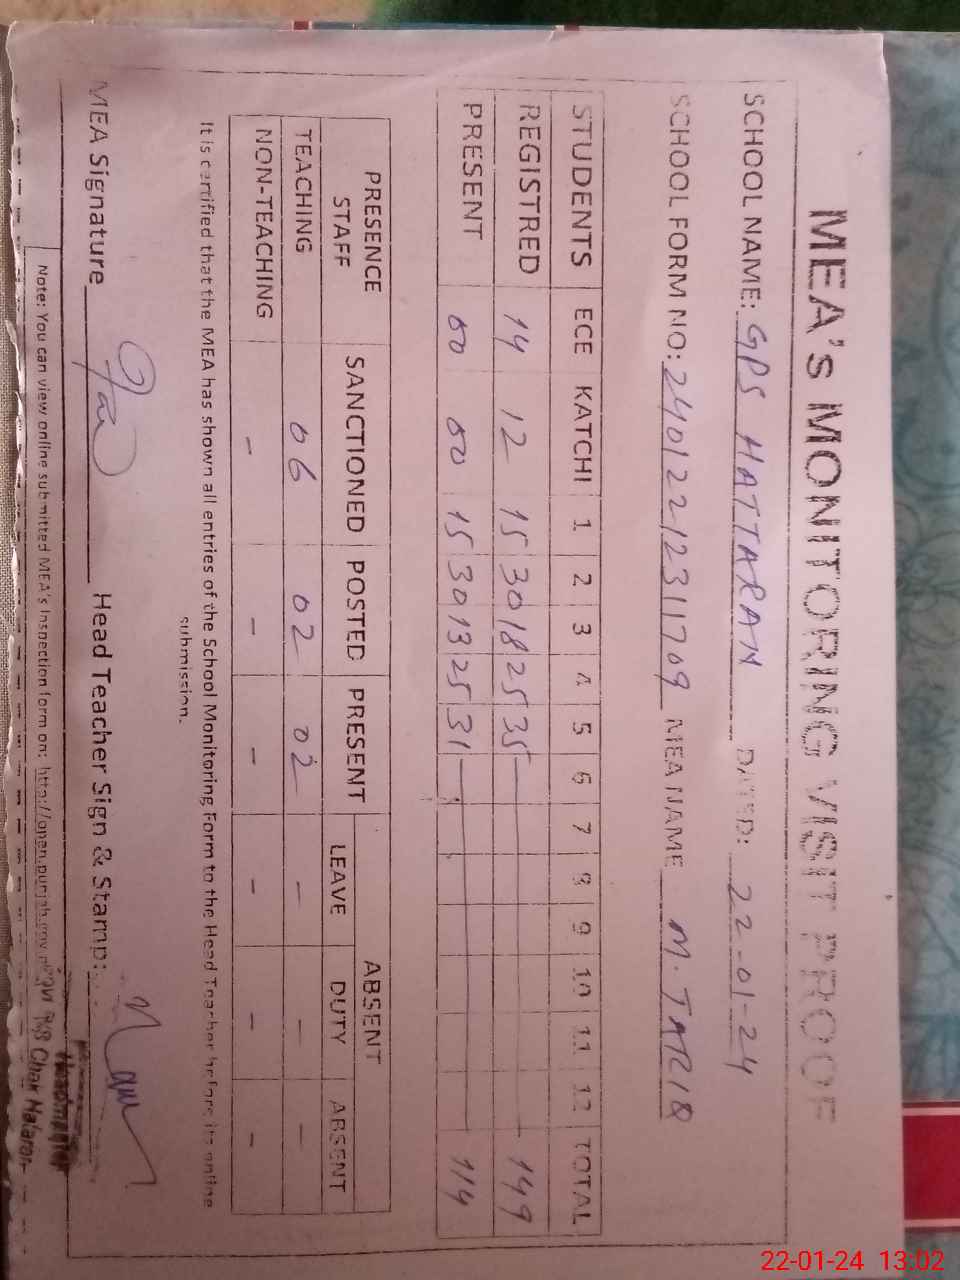 MEA's MONITORING VISIT PROOF
SCHOOL NAME: GPS HATTARAN DATED: 22-01-24
SCHOOL FORM NO: 24012212311709 MEA NAME M. TARIQ
STUDENTS ECE KATCHI 1 2 3 4 5 6 7 8 9 10 11 12 TOTAL
REGISTRED 14 12 15 30 18 25 35 149
PRESENT 00 00 15 30 13 25 31 114
PRESENCE STAFF SANCTIONED POSTED PRESENT ABSENT
LEAVE DUTY ABSENT
TEACHING 06 02 02 - - -
NON-TEACHING - - - - - -
It is certified that the MEA has shown all entries of the School Monitoring Form to the Head Teacher before its online
submission.
MEA Signature Head Teacher Sign & Stamp:
Headmaster
Chak Hataran
Note: You can view online submitted MEA's inspection form on: http://open.punjab.gov.pk
22-01-24 13:02